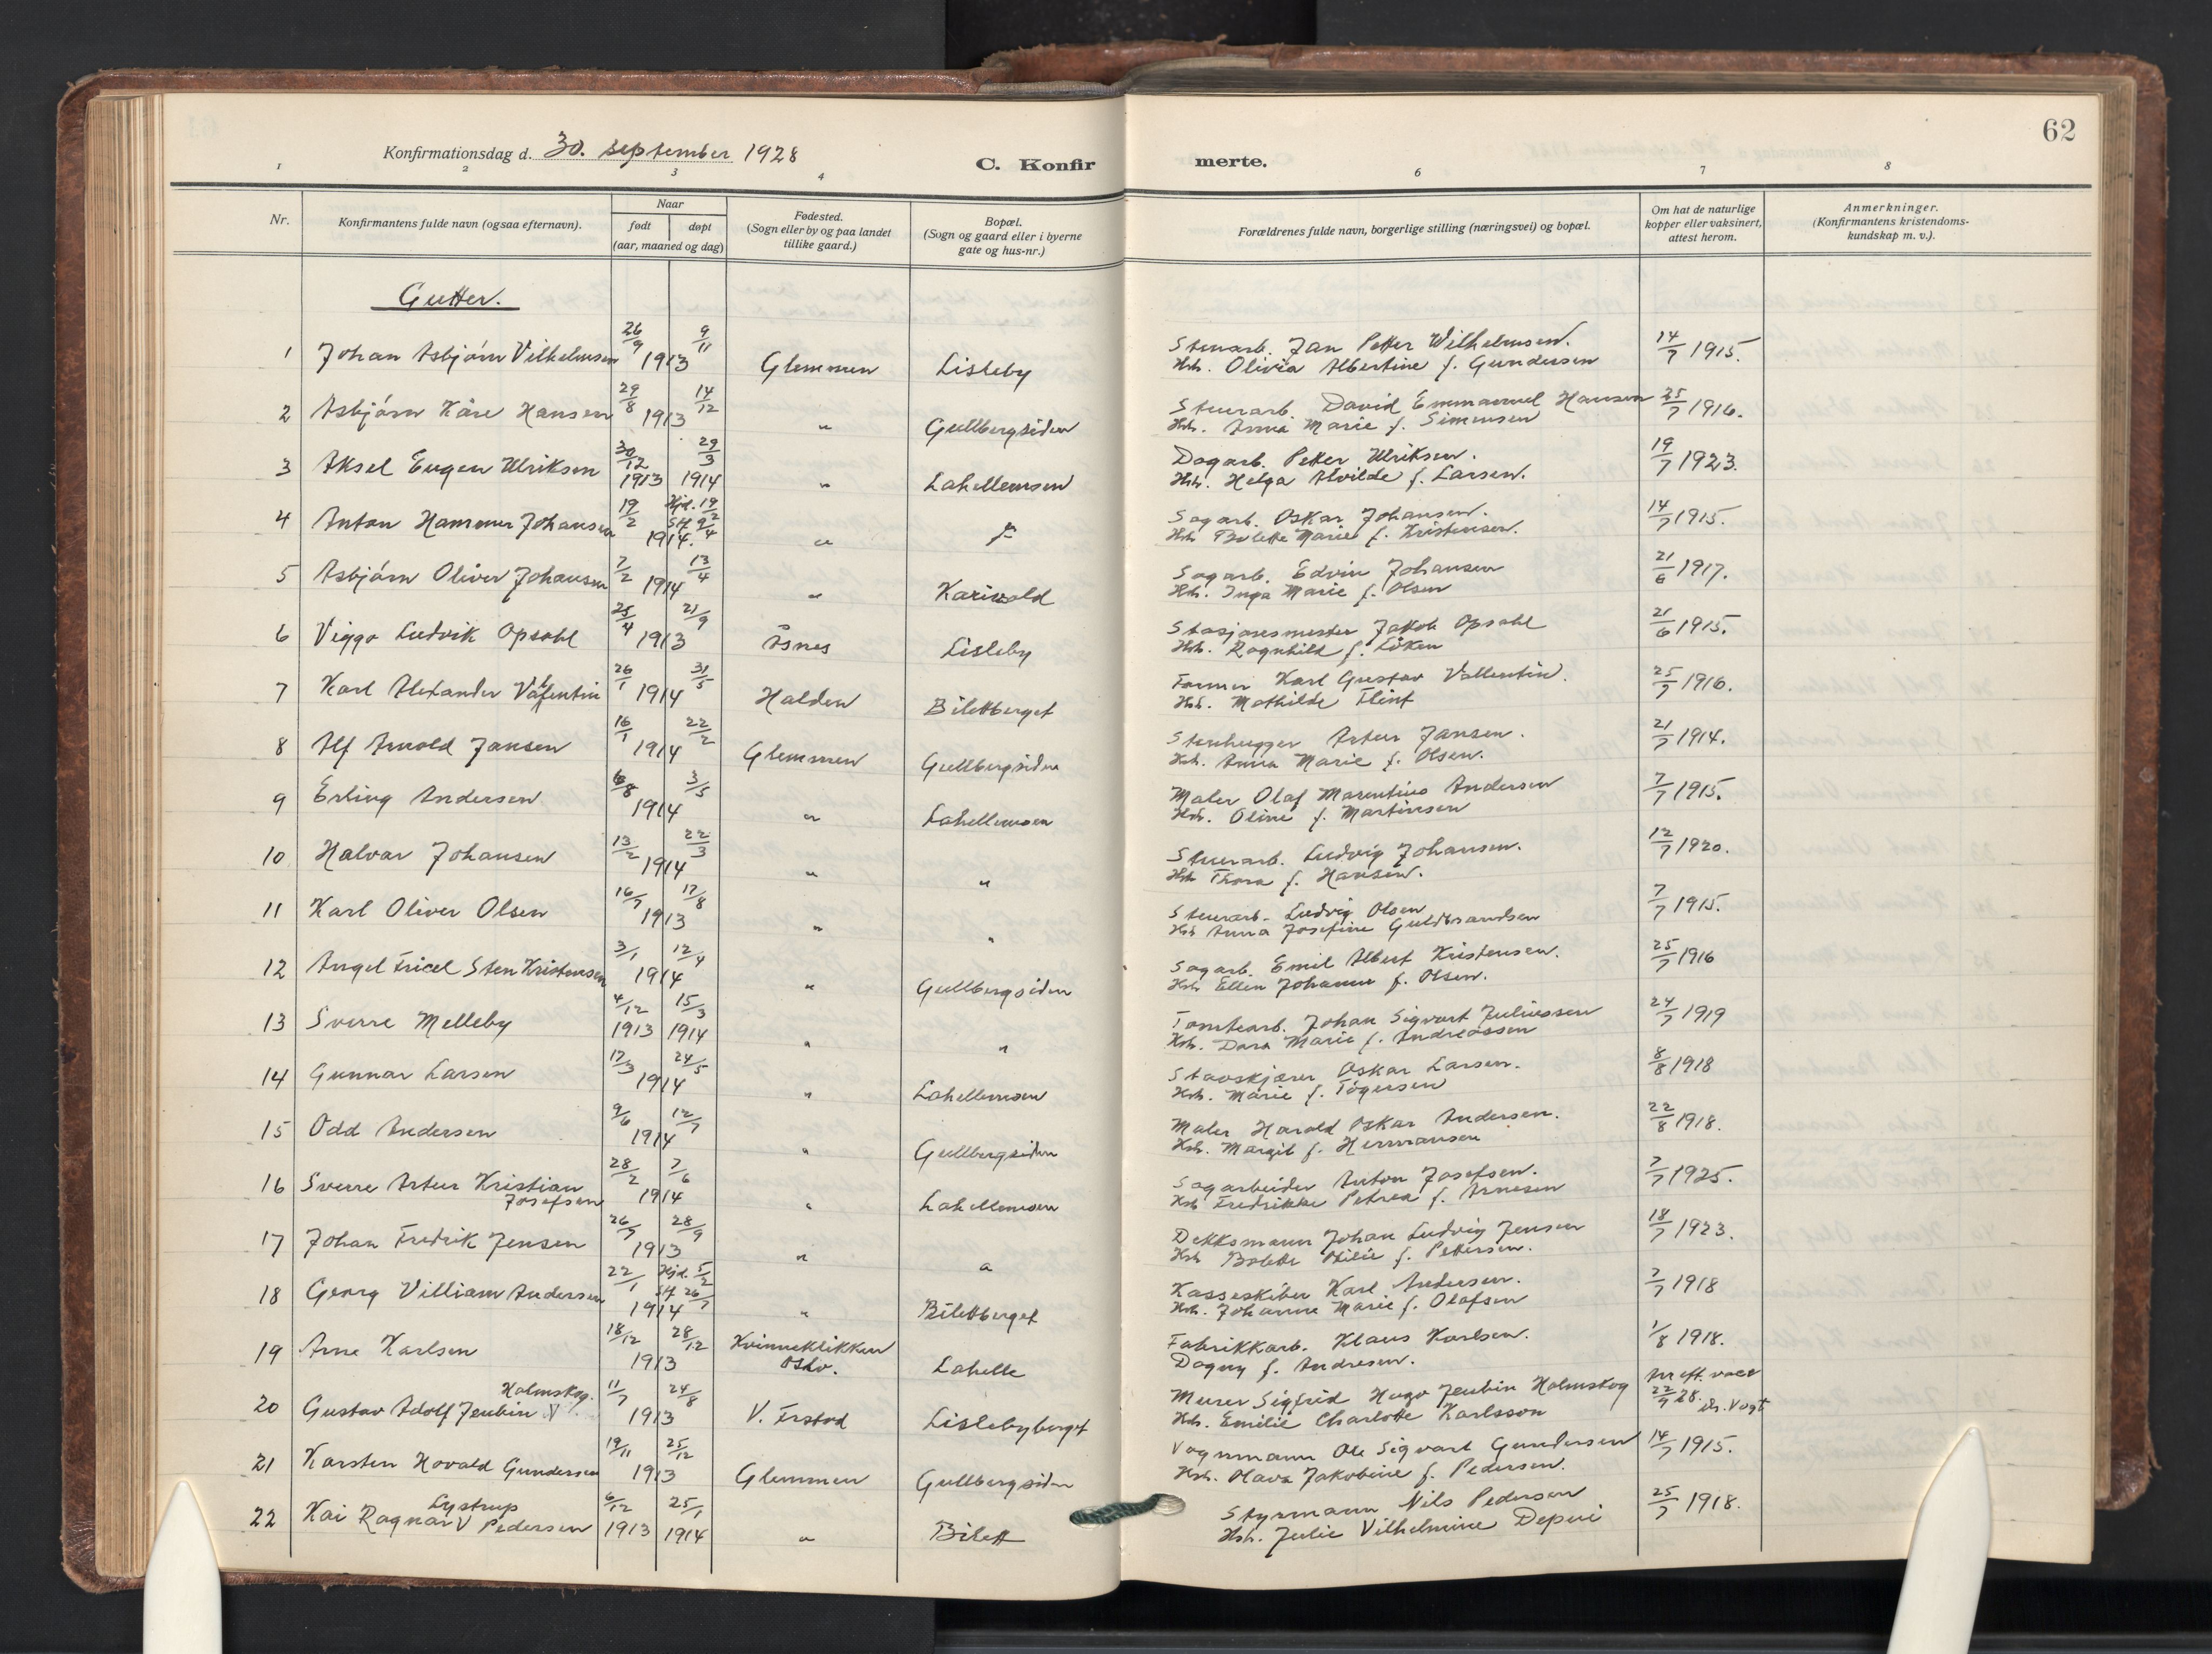 62
Konfirmationsdag d. 30. september 1928
C. Konfirmerte.
1 2 3 4 6 7 8
Nr.
Konfirmantens fulde navn (ogsaa efternavn).
Naar
født døpt
(aar, maaned og dag)
Fødested.
(Sogn eller by og paa landet
tillike gaard.)
Bopæl.
(Sogn og gaard eller i byerne
gate og hus-nr.)
Forældrenes fulde navn, borgerlige stilling (næringsvei) og bopæl.
Om hat de naturlige
kopper eller vaksinert,
attest herom.
Anmerkninger.
(Konfirmantens kristendoms-
kundskap m. v.).
Gutter.
1 Johan Asbjørn Vilhelmsen 26/9 9/11 1913 Glemmen Lisleby Stenarb. Jan Petter Wilhelmsen. 14/7 1915.
Hh. Olivia Albertine f. Gundersen
2 Asbjørn Kåre Hansen 29/8 14/12 1913 " Gullbergsiden Stenarb. David Emmanuel Hansen 25/7 1916.
Hh. Anna Marie f. Simensen
3 Aksel Eugen Ulriksen 30/12 1913 29/3 1914 " Lahellemoen Dagarb. Petter Ulriksen. 19/7 1923.
Hh. Helga Alvilde f. Larsen.
4 Anton Hammer Johansen 19/2 Hjd. 19/2 Stf. 9/4 1914. " Sagarb. Oskar Johansen. 14/7 1915.
Hh. Bolette Marie f. Kristensen.
5 Asbjørn Oliver Johansen 7/2 13/4 1914 " Karivold Sagarb. Edvin Johansen 21/6 1917.
Hh. Inga Marie f. Olsen
6 Viggo Ludvik Opsahl 25/4 21/9 1913 Åsnes Lisleby Stasjonsmester Jakob Opsahl 21/6 1915.
Hh. Ragnhild f. Löken
7 Karl Alexander Vallentin 26/1 31/5 1914 Halden Bilettberget Former Karl Gustav Vallentin. 25/7 1916.
Hh. Mathilde Flint
8 Alf Arnold Jansen 16/1 22/2 1914 Glemmen Gullbergsiden Stenhugger Artur Jansen. 21/7 1914.
Hh. Anna Marie f. Olsen.
9 Erling Andersen 6/8 3/5 1914 " Lahellemoen Maler Olaf Marentius Andersen 7/7 1915.
Hh. Oline f. Martinsen
10 Halvar Johansen 13/2 22/3 1914 " " Stenarb. Ludvig Johansen. 12/7 1920.
Hh Thora f. Hansen.
11 Karl Oliver Olsen 16/7 17/8 1913 " " Stenarb. Ludvig Olsen 7/7 1915.
Hh Anna Josefine Guldbrandsen
12 Angel Fricel Sten Kristensen 3/1 12/4 1914 " Gullbergsiden Sagarb. Emil Albert Kristensen. 25/7 1916
Hh Ellen Johanne f. Olsen.
13 Sverre Melleby 4/12 1913 15/3 1914 " " Tomtearb. Johan Sigvart Juliussen 24/7 1919
Hh. Dora Marie f. Andreassen
14 Gunnar Larsen 17/3 24/5 1914 " Lahellemoen Stavskjærer Oskar Larsen. 8/8 1918
Hh. Marie f. Tögersen
15 Odd Andersen 9/6 12/7 1914 " Gullbergsiden Maler Harald Oskar Andersen. 22/8 1918.
Hh. Margit f. Hermansen
16 Sverre Artur Kristian Josefsen 28/2 7/6 1914 " Lahellemoen Sagarbeider Anton Josefsen. 7/7 1925.
Hh Fredrikke Petrea f. Arnesen
17 Johan Fredrik Jensen 26/7 28/9 1913 " " Dekksmann Johan Ludvig Jensen 18/7 1923.
Hh Bolette Otilie f. Pettersen.
18 Georg Villiam Andersen 22/1 Hjd. 5/2 Stf 26/7 1914 " Bilettberget Kasseskiber Karl Andersen. 7/7 1918
Hh. Johanne Marie f. Olafsen
19 Arne Karlsen 18/12 28/12 1913 Kvinneklikken Oslo. Lahelle Fabrikkarb. Klaus Karlsen. 1/8 1918.
Dagny f. Andresen.
20 Gustav Adolf Jenbin V Holmskog. 11/7 24/8 1913 V. Frstad Lislebyberget Murer Sigfrid Hugo Jenbin Holmskog 22/7 28. dr. Vogt
Hh. Emilie Charlotte Karlsson
21 Karsten Hovald Gundersen 19/11 25/12 1913 Glemmen Gullbergsiden Vognmann Ole Sigvart Gundersen 14/7 1915.
Hh. Olava Jakobine f. Pedersen.
22 Kai Ragnar V Lystrup Pedersen 6/12 1913 25/1 1914 " Bilett Styrmann Nils Pedersen 25/7 1918.
Hh. Julie Vilhelmine Depui